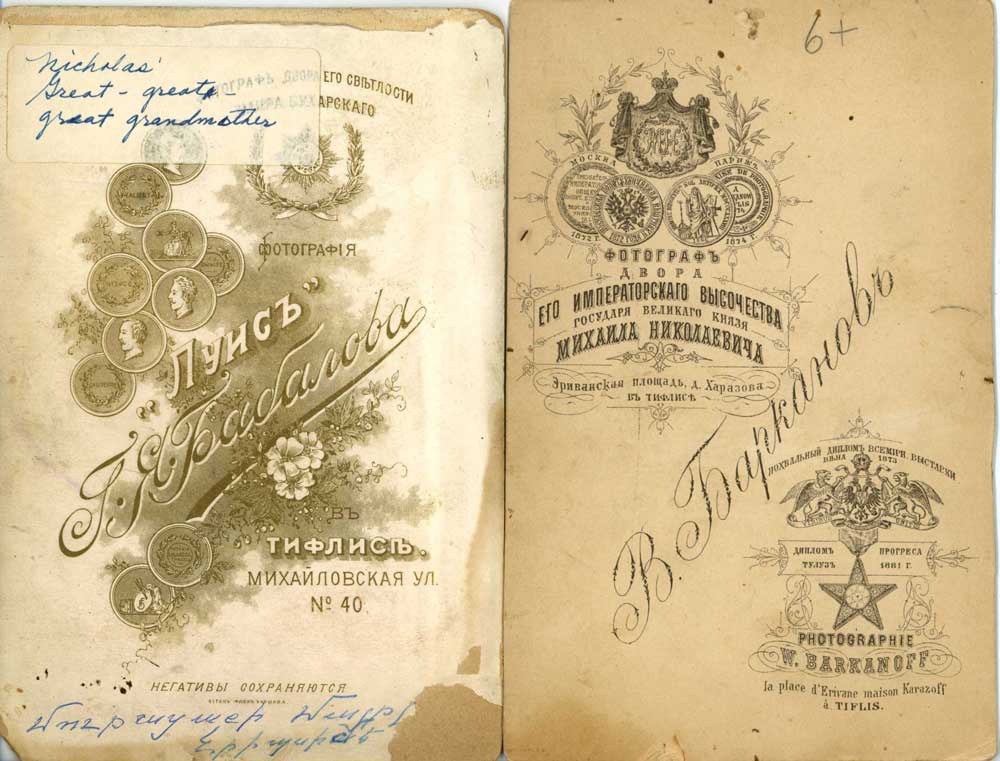 Nicholas'
Great - great -
great grandmother
ФОТОГРАФЪ ДВОРА ЕГО СВѢТЛОСТИ
ЭМИРА БУХАРСКАГО
ФОТОГРАФІЯ
„ЛУИСЪ"
Г. Я. Бабалова
ВЪ
ТИФЛИСѢ.
МИХАЙЛОВСКАЯ УЛ.
№ 40.
НЕГАТИВЫ СОХРАНЯЮТСЯ
6+
МОСКВА ПАРИЖЪ
1872 Г. 1874 Г.
ФОТОГРАФЪ
ДВОРА
ЕГО ИМПЕРАТОРСКАГО ВЫСОЧЕСТВА
ГОСУДАРЯ ВЕЛИКАГО КНЯЗЯ
МИХАИЛА НИКОЛАЕВИЧА
Эриванская площадь, д. Харазова
ВЪ ТИФЛИСѢ
В. Баркановъ
ПОХВАЛЬНЫЙ ДИПЛОМЪ ВСЕМІРН. ВЫСТАВКИ
ВѢНА 1873
ДИПЛОМЪ ПРОГРЕСА
ТУЛУЗЪ 1881 Г.
PHOTOGRAPHIE
W. BARKANOFF
la place d'Erivane maison Karazoff
à TIFLIS.